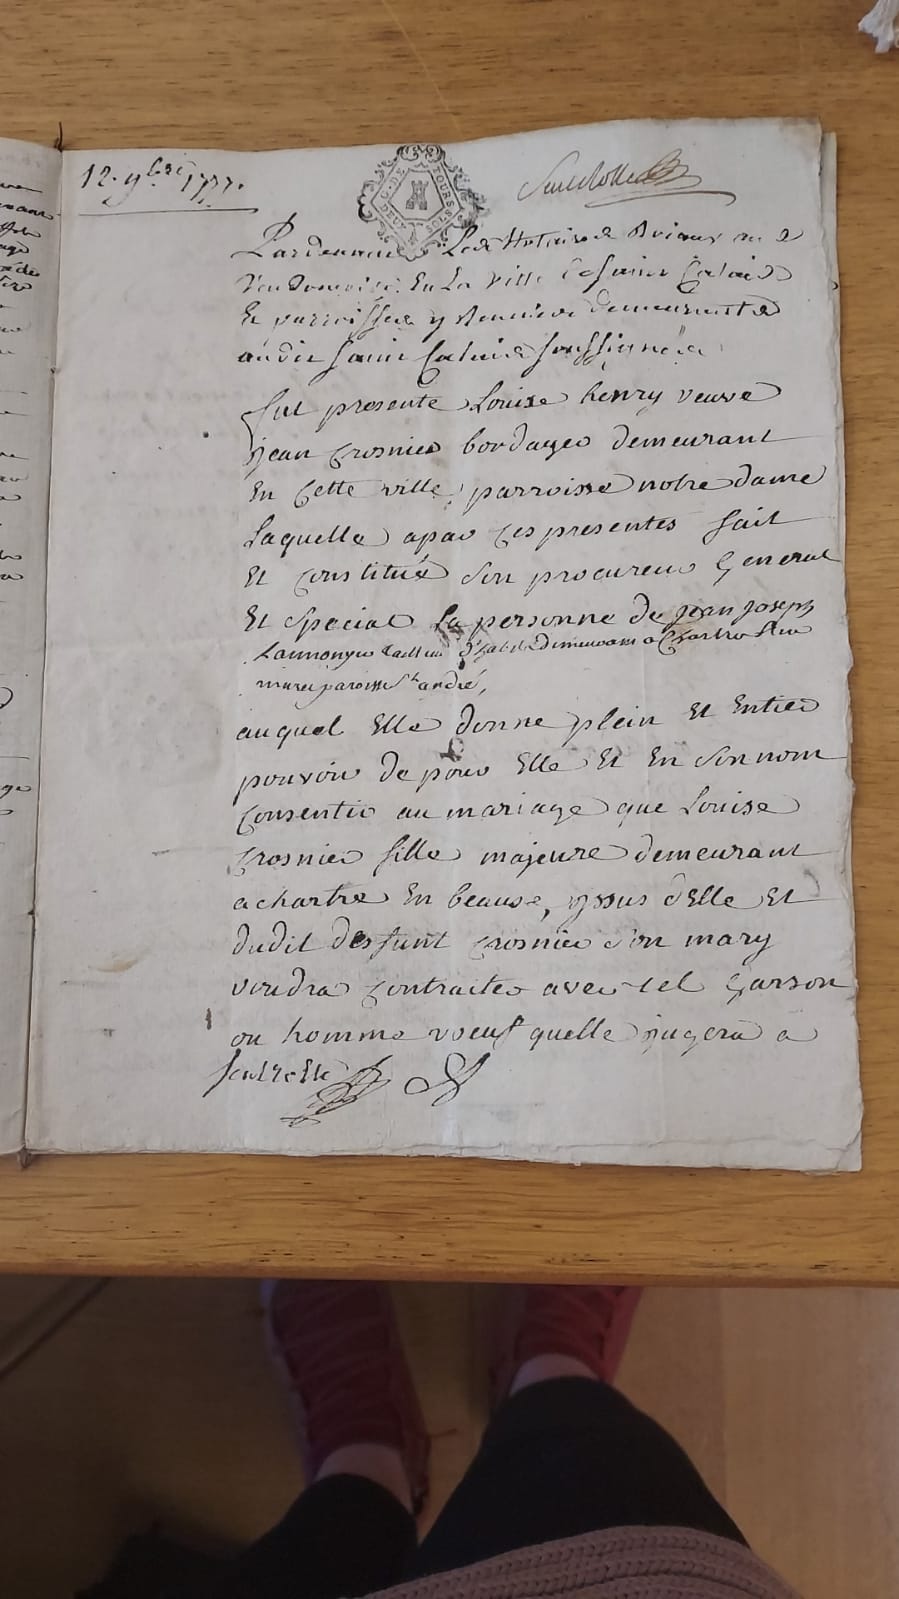 12. 9bre 1777.
G. DE TOURS
DEUX SOLS
Pardevant Les Notaires
Vendomois En La Ville de Saint Calais
Et parroisses y demeurants
audit Saint Calais soussignés
fut presente Louise henry veuve
jean Crosnier bordager demeurant
En Cette ville, parroisse notre dame
Laquelle a par Ces presentes fait
Et Constitué Son procureur General
Et Special La personne de jean joseph
tailleur d'habits demeurant a Chartres
paroisse St. andré,
auquel Elle donne plein Et Entier
pouvoir de pour Elle Et En Son nom
Consentir au mariage que Louise
Crosnier fille majeure demeurant
a chartre En beause, yssus d'Elle Et
dudit deffunt Crosnier son mary
voudra Contracter avec tel Garson
ou homme voeuf quelle jugera a